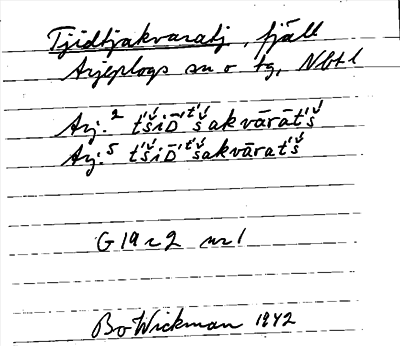 Tjidtjakvaratj, fjäll
Arjeplogs sn o tg, Nbtl
Arj.² t́š́iD̄ t́š́akvārāt́š́
Arj.⁵ t́š́iD̄ t́š́akvārat́š́
G 19 r 2 nr 1
Bo Wickman 1942